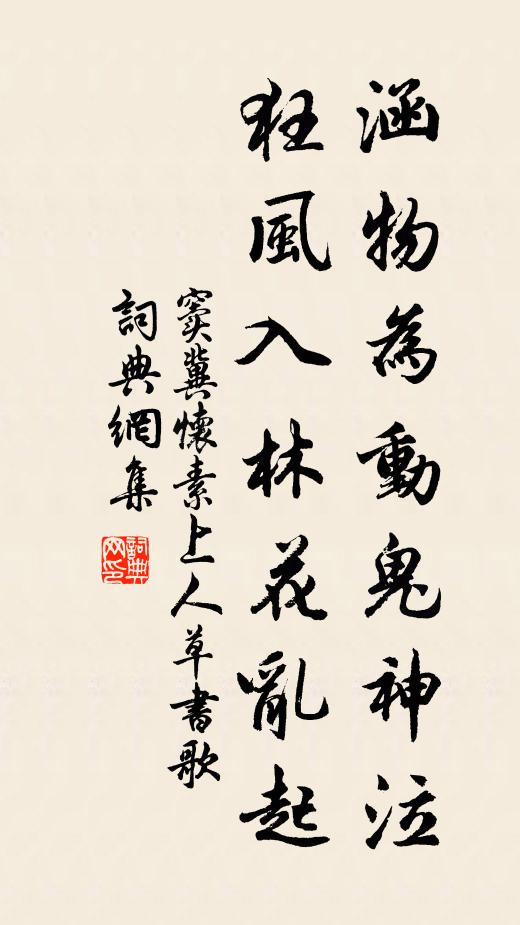 涵物為動鬼神泣
狂風入林花亂起
竇冀懷素上人草書歌
詞典網集
詞典
网印